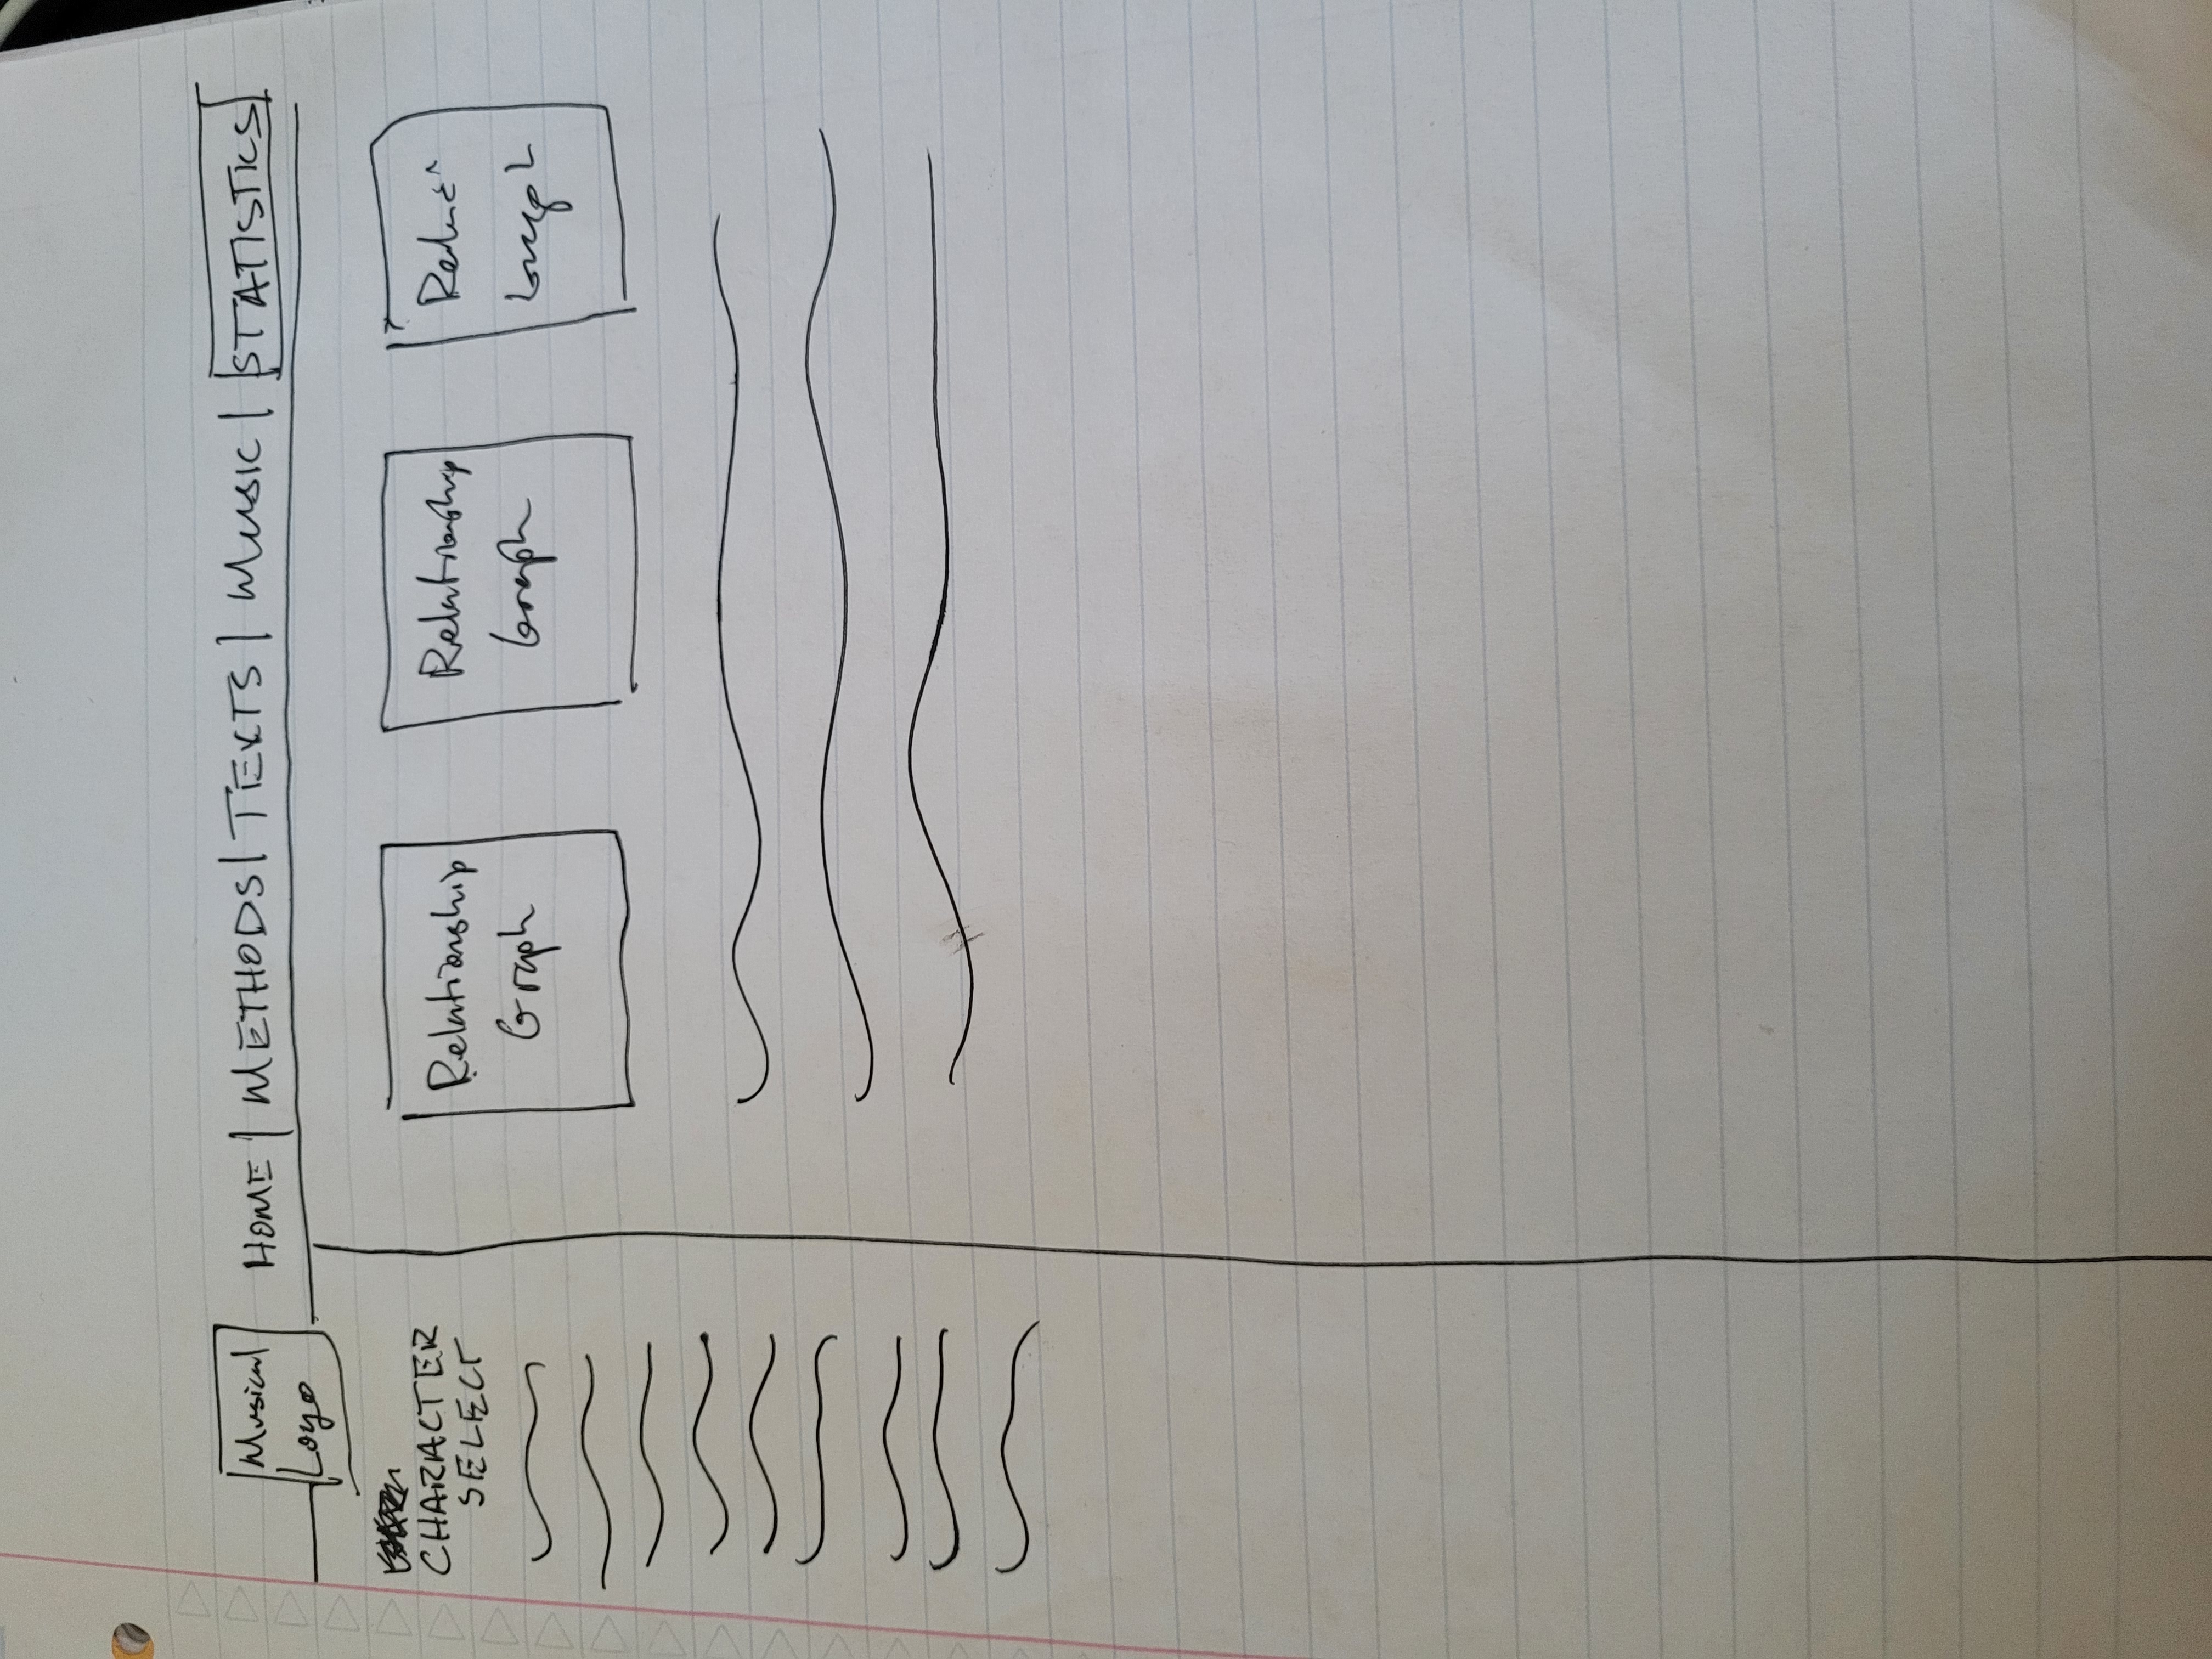 Musical
Logo
HOME | METHODS | TEXTS | MUSIC | STATISTICS
CHARACTER
SELECT
Relationship
Graph
Relationship
Graph
Graph